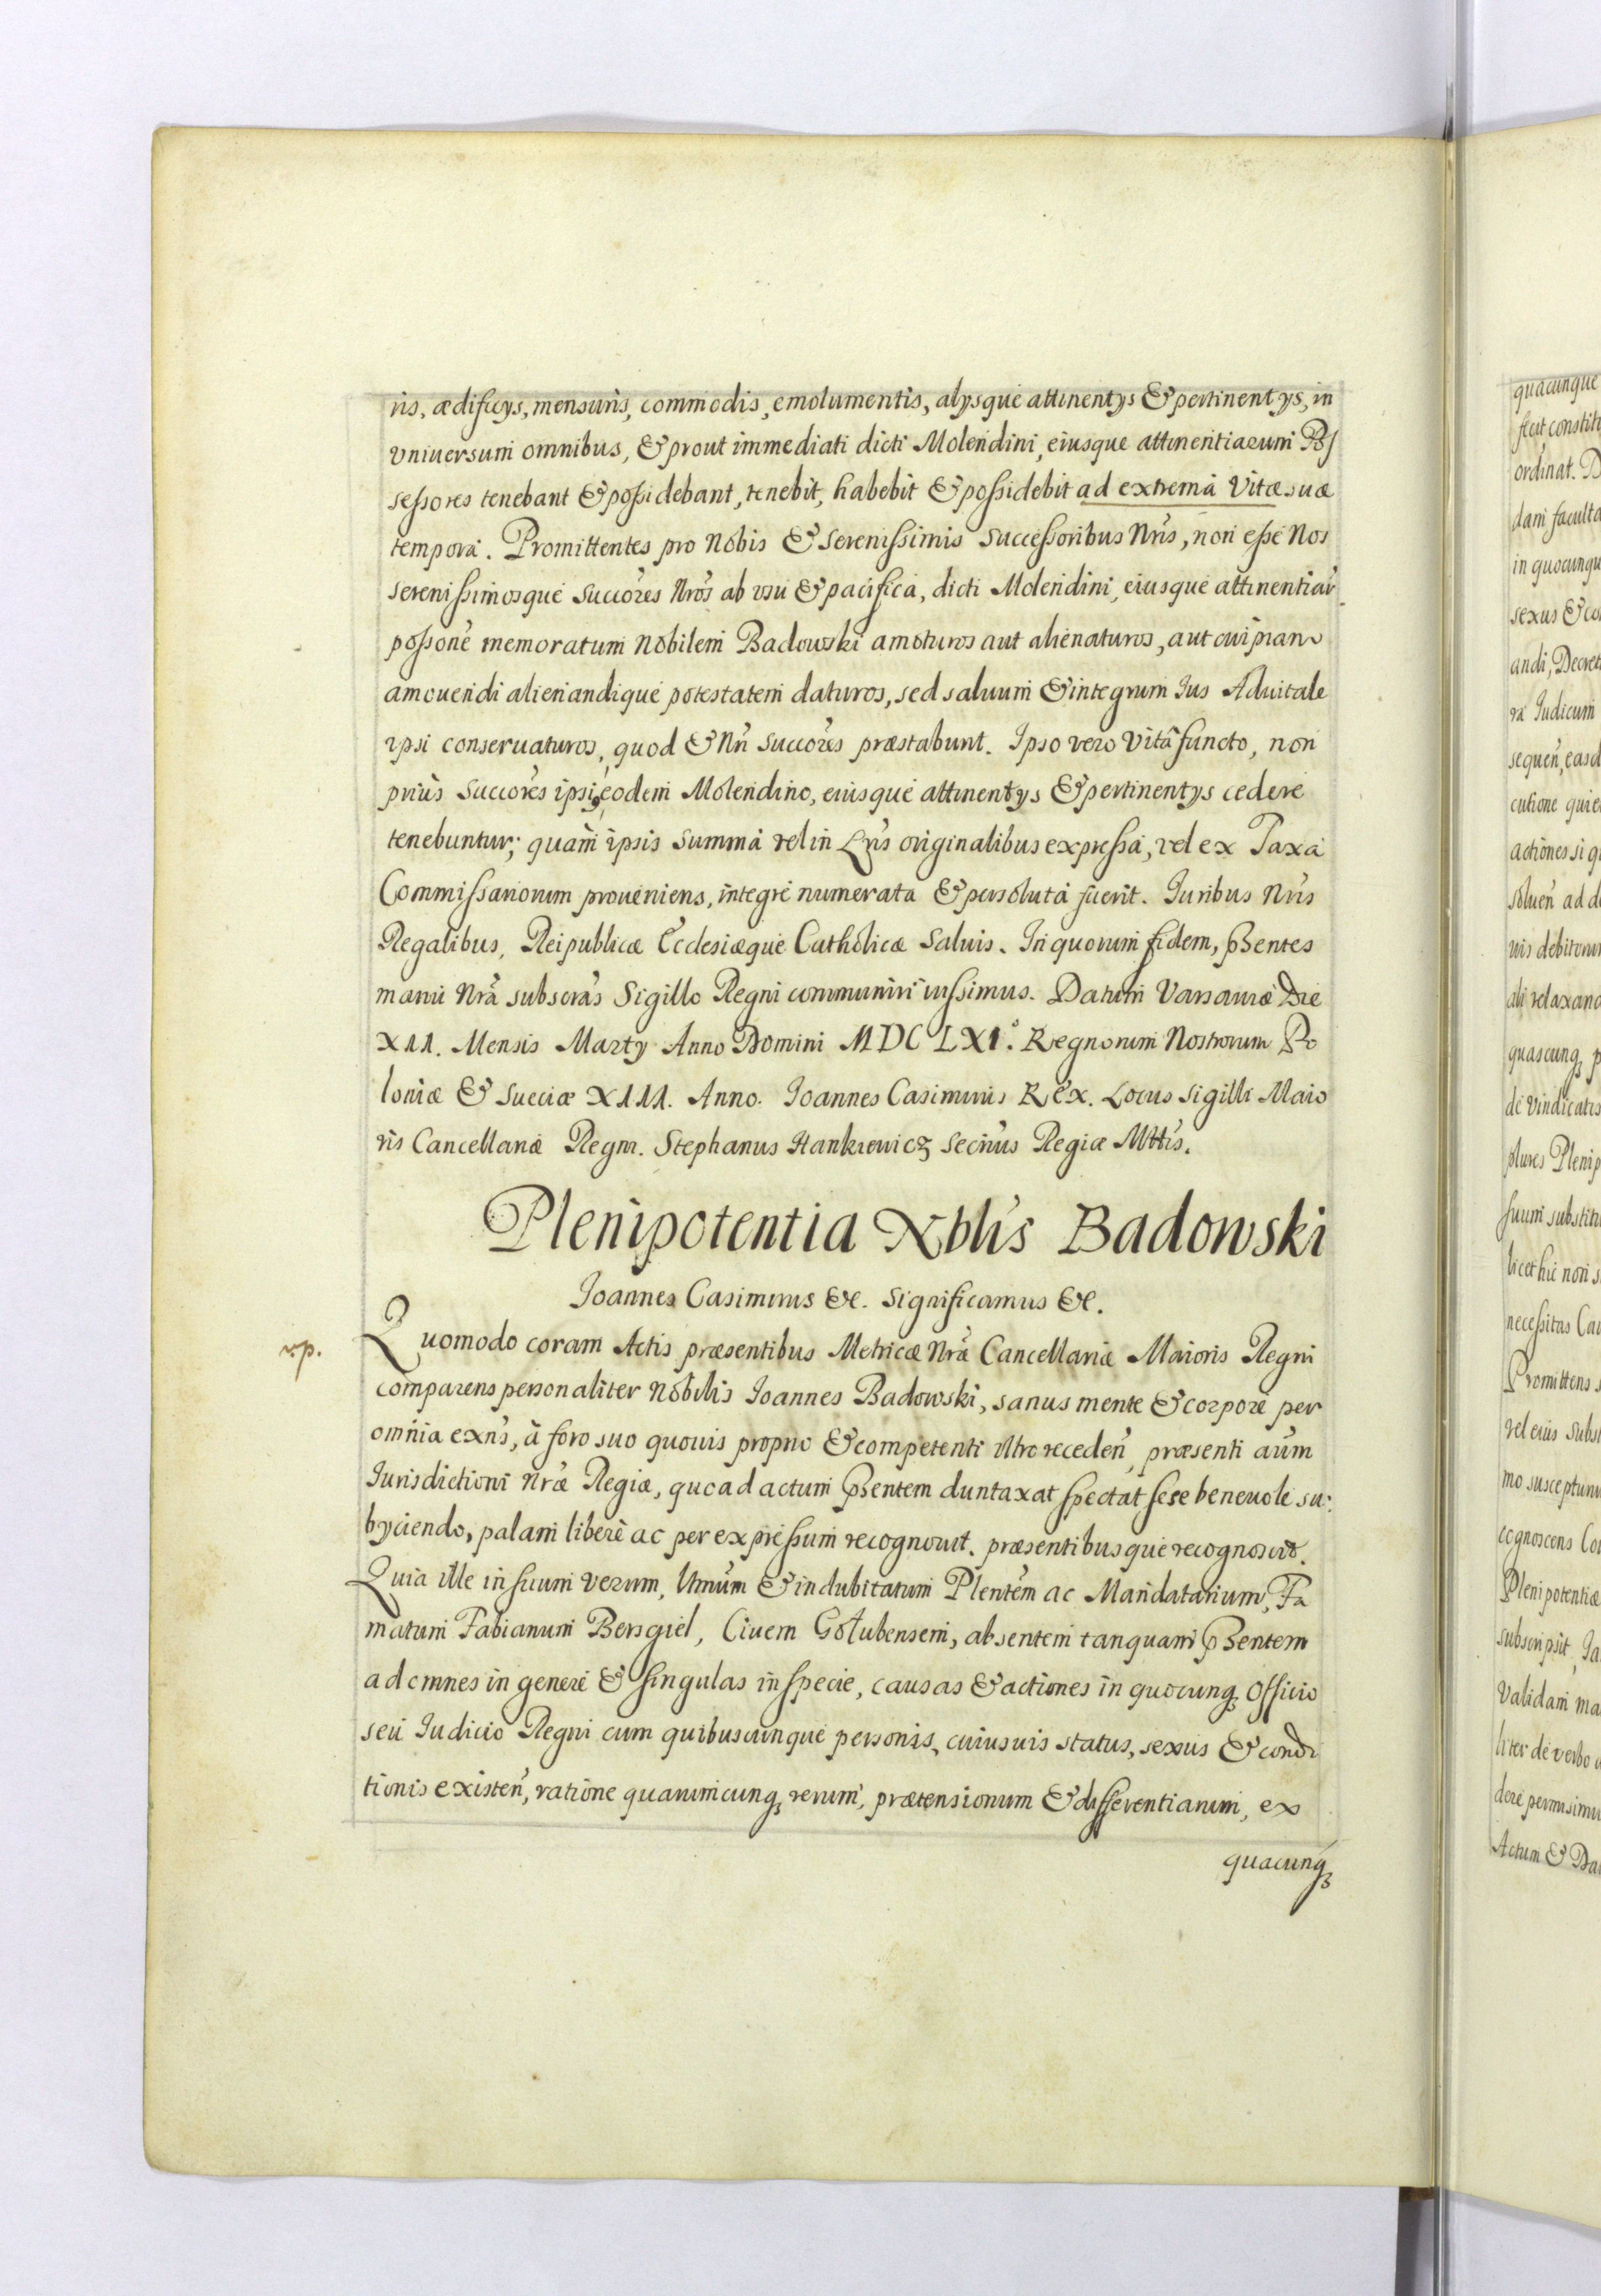 ris, ædificys, mensuris, commodis, emolumentis, alysque attinentys & pertinentys, in
vniuersum omnibus, & prout immediati dicti Molendini, eiusque attinentiarum Pos
sessores tenebant & possidebant, tenebit, habebit & possidebit ad extrema Vitæ suæ
tempora. Promittentes pro Nobis & Serenissimis Successoribus Nris, non esse Nos
serenissimosque Succores Nros ab vsu & pacifica, dicti Molendini, eiusque attinentiar
possone memoratum Nobilem Badowski amoturos aut alienaturos, aut cuipiam
amouendi alienandique potestatem daturos, sed saluum & integrum Ius Aduitale
ipsi conseruaturos, quod & Nri Succores præstabunt. Ipso vero Vitâ functo, non
priùs Succores ipsi, eodem Molendino, eiusque attinentys & pertinentys cedere
tenebuntur; quàm ipsis summa vel in Lris originalibus expressa, vel ex Taxa
Commissariorum proueniens, integre numerata & persoluta fuerit. Iuribus Nris
Regalibus, Reipublicæ Ecclesiæque Catholicæ Saluis. In quorum fidem, pntes
manu Nra subscras Sigillo Regni communiri iussimus. Datum Varsauiæ Die
XII. Mensis Marty Anno Domini MDCLXI°. Regnorum Nostrorum Po
loniæ & Sueciæ XIII. Anno. Ioannes Casimirus Rex. Locus Sigilli Maio
ris Cancellariæ Regni. Stephanus Hankiewicz Secrius Regiæ Mttis.
Plenipotentia Nblis Badowski
Ioannes Casimirus &c. Significamus &c.
rp.
Quomodo coram Actis præsentibus Metricæ Nræ Cancellariæ Maioris Regni
comparens personaliter Nobilis Ioannes Badowski, sanus mente & corpore per
omnia exns, à foro suo quouis proprio & competenti vltro receden, præsenti aum
Iurisdictioni Nræ Regiæ, quoad actum pntem duntaxat spectat sese beneuole su:
byciendo, palam liberè ac per expressum recognouit. præsentibusque recognoscit.
Quia ille in suum verum, ltmum & indubitatum Plentem ac Mandatarium, Fa
matum Fabianum Bersgiel, Ciuem Golubensem, absentem tanquam pntem
ad omnes in genere & singulas in specie, causas & actiones in quocunq, Officio
seu Iudicio Regni cum quibuscunque personis, cuiusuis status, sexus & condi
tionis existen, ratione quarumcunq, rerum, prætensionum & differentiarum, ex
quacunq,
quacunque
fecit constit
ordinat. D
dam faculta
in quocunqu
sexus & co
andi, Decret
ra Iudicum
sequen, easd
cutione quie
actiones si q
soluen ad d
uis debitorum
ali relaxand
quascunq, p
de vindicatis
plures Plenip
suum substitu
licet hic non s
necessitas Cau
Promittens s
vel eius subs
mo susceptum
cognoscens Co
Plenipotentiæ
subscripsit, Ia
Validam ma
liter de verbo a
dere permisimu
Actum & Da